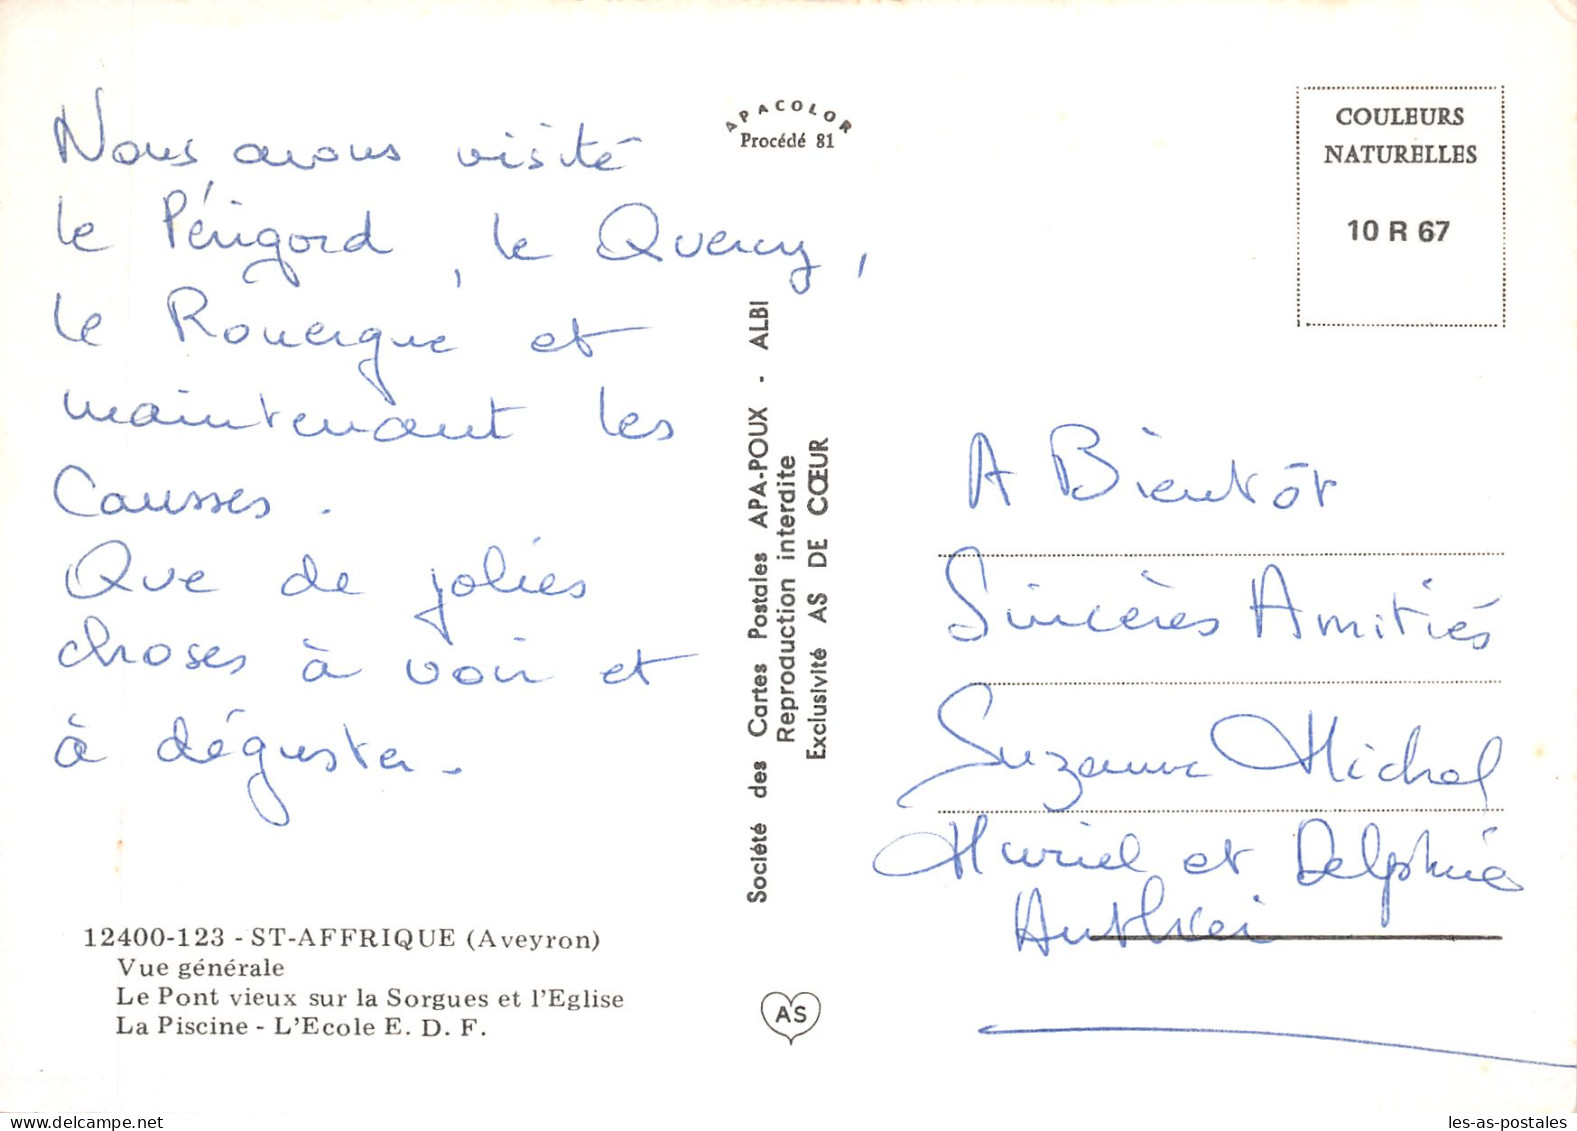 Nous avons visité
le Périgord, le Quercy,
le Rouergue et
maintenant les
Causses.
Que de jolies
choses à voir et
à déguster.
12400-123 - ST-AFFRIQUE (Aveyron)
Vue générale
Le Pont vieux sur la Sorgues et l'Eglise
La Piscine - L'Ecole E. D. F.
APACOLOR
Procédé 81
Société des Cartes Postales APA-POUX - ALBI
Reproduction interdite
Exclusivité AS DE CŒUR
AS
COULEURS
NATURELLES
10 R 67
A Bientôt
Sincères Amitiés
Suzanne Michel
Muriel et Delphine
delcampe.net
les-as-postales